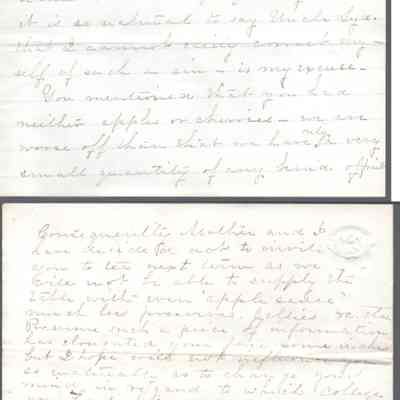 it is so natural to say Uncle Syl.
that I cannot easily correct my-
self of such a sin - is my excuse.
You mentioned that you had
neither apples or cherries - we are
worse off than that we have only a very
small quantity of any kind of fruit
Consequently Mother and I
have decided not to invite
you to tea next term as we
will not be able to supply the
table with even "apple sauce"
much less preserves, jellies &c. I
Presume such a piece of information
has elongated your face some inches
but I hope will not influence you
so materially as to change your
mind in regard to which college